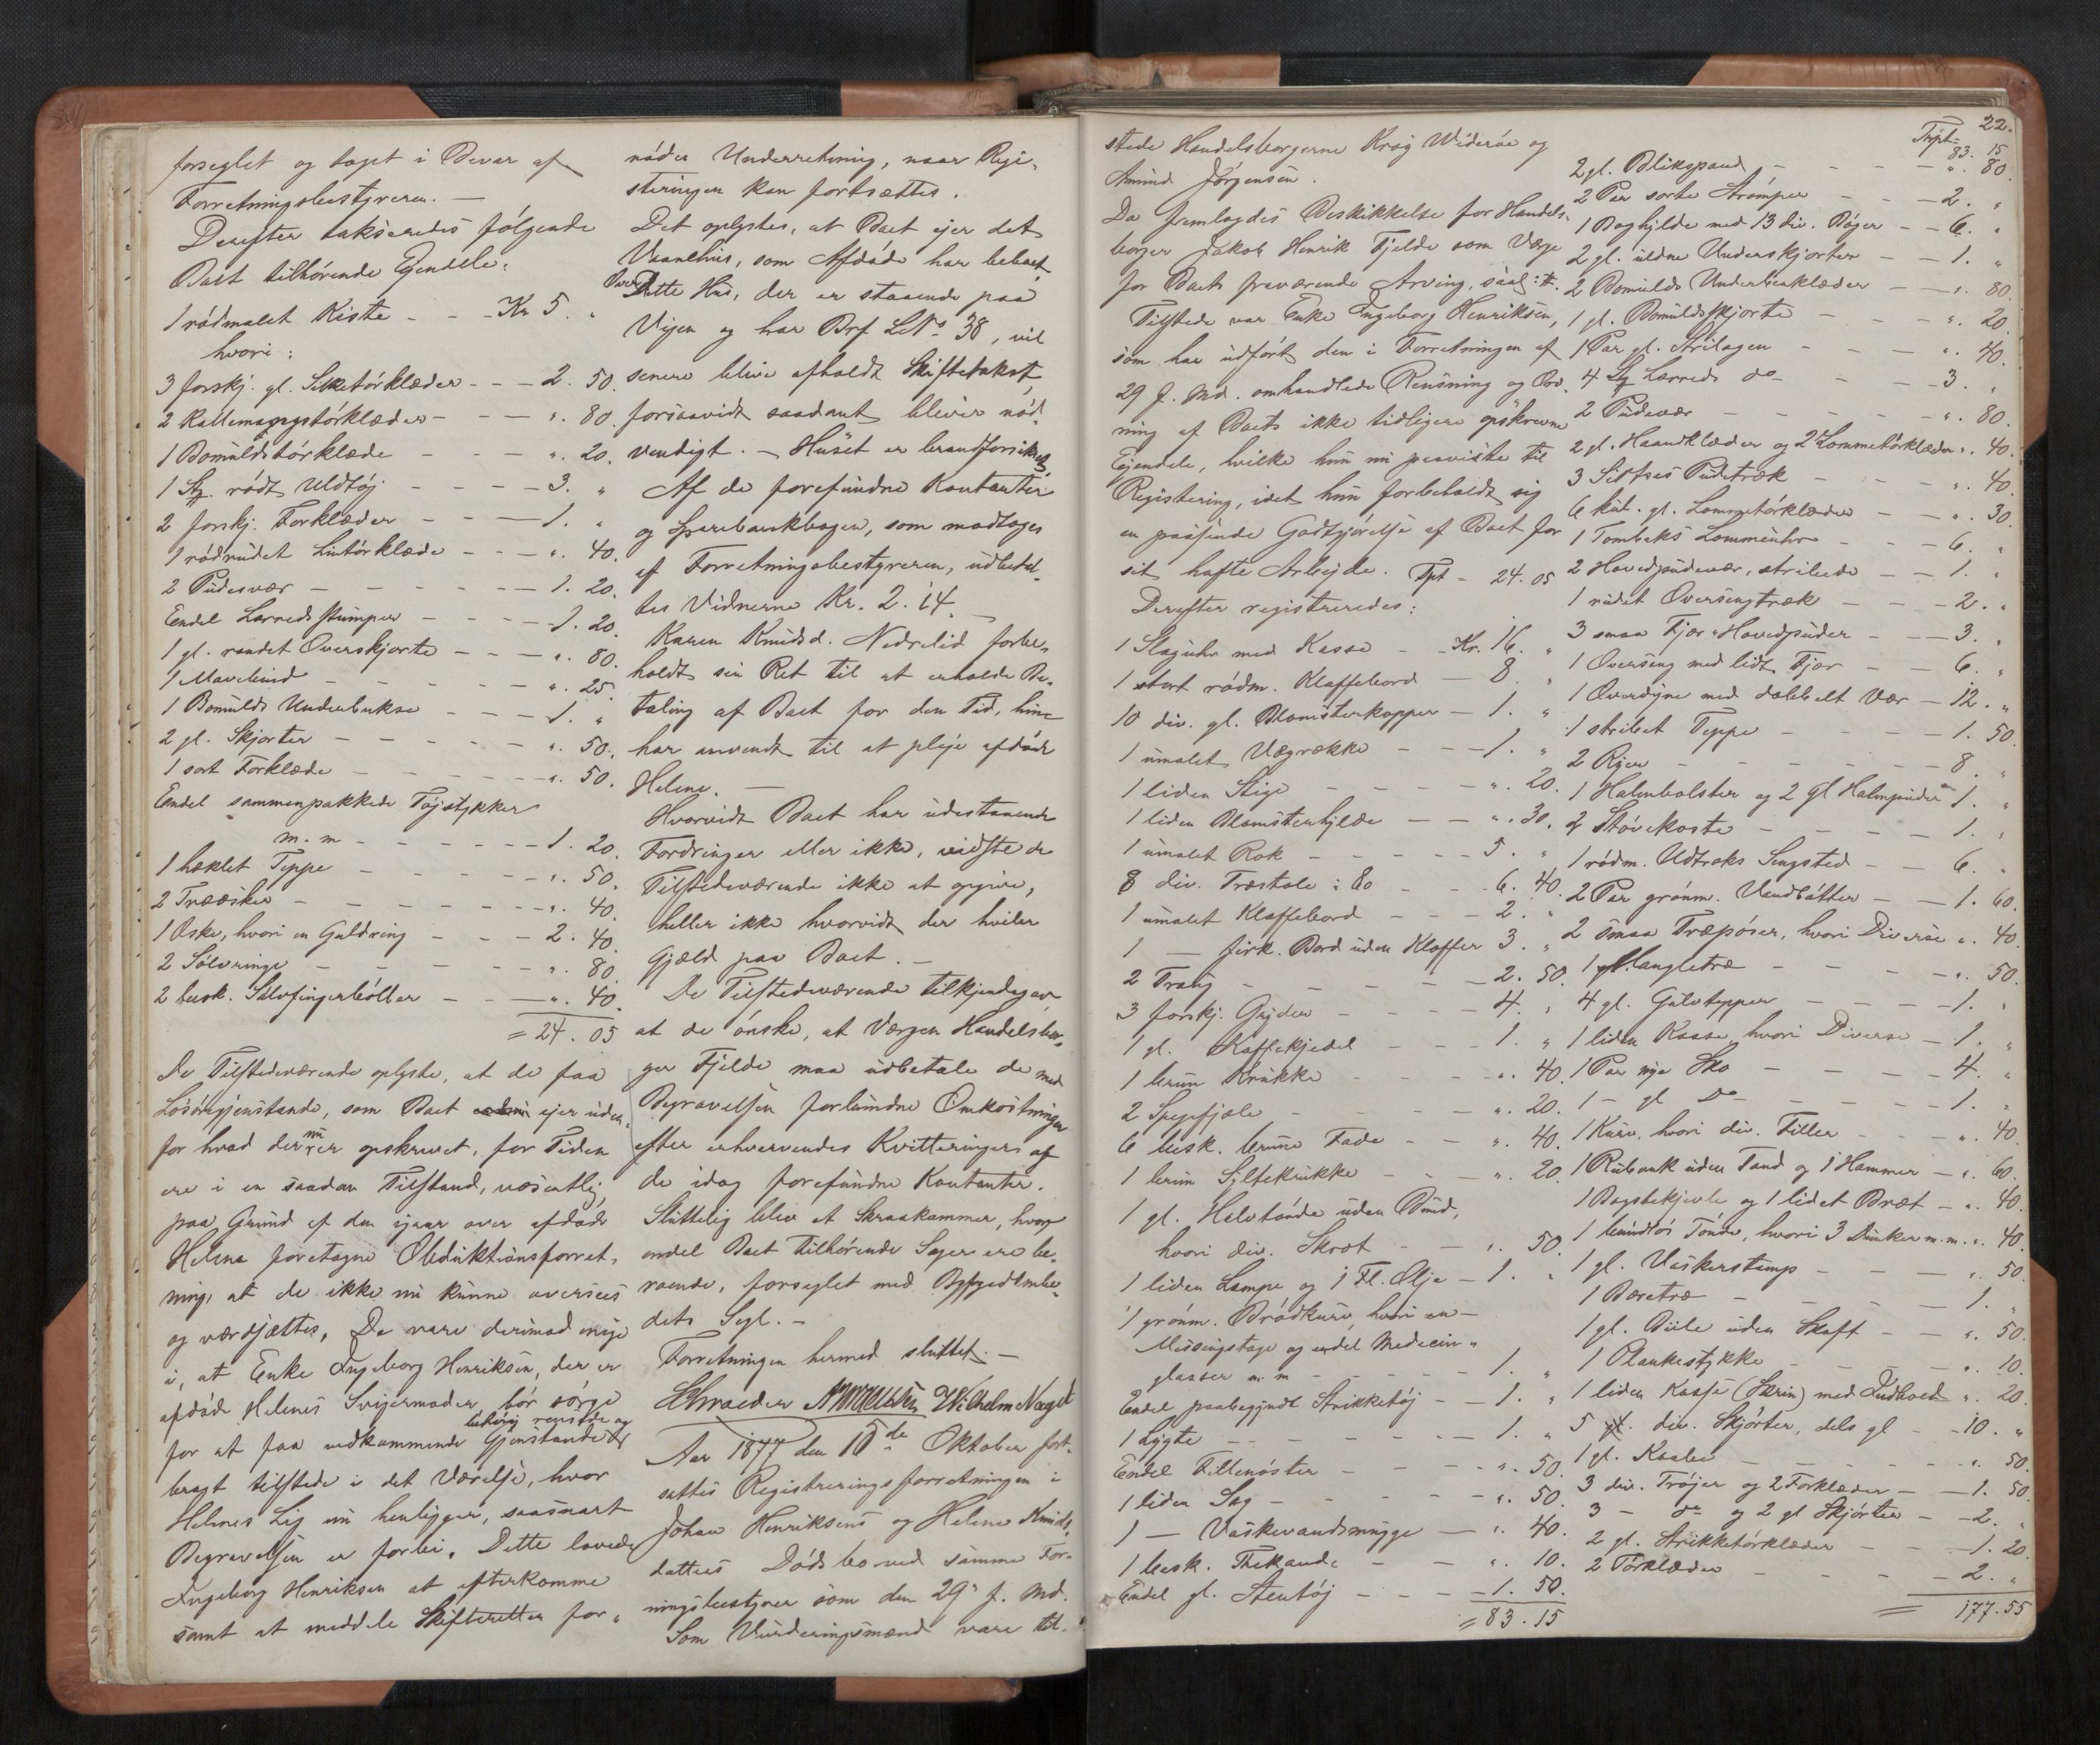 forseglet og taget i Bevar af
Forretningsbestyreren. —
Derefter takseredes følgende
Boet tilhørende Ejendele:
1 rødmalet Kiste - - - Kr 5. "
hvori:
3 forskj. gl. Silketørklæder - - - 2. 50.
2 Kallemagstørklæder - - - ". 80.
1 Bomuldstørklæde - - - ". 20.
1 Stk. rødt Uldtøj - - - 3. "
2 forskj. Forklæder - - - 1. "
1 rødrudet Lintørklæde - - - ". 40.
2 Pudevær - - - 1. 20.
Endel Lærredsstumper - - - 1. 20.
1 gl. randet Overskjorte - - - ". 80.
1 Mavebind - - - ". 25.
1 Bomulds Underbukse - - - 1. "
2 gl. Skjorter - - - ". 50.
1 sort Forklæde - - - ". 50.
Endel sammenpakkede Tøjstykker
m. m - - - 1. 20.
1 heklet Teppe - - - ". 50.
2 Træesker - - - ". 40.
1 Æske, hvori en Guldring - - - 2. 40.
2 Sølvringe - - - ". 80.
2 besk. Sølvfingerbøller - - - ". 40.
= 24. 05
De Tilstedeværende oplyste, at de faa
Løsøregjenstande, som Boet ejer uden-
for hvad der nu er opskrevet, for Tiden
ere i en saadan Tilstand, væsentlig
paa Grund af den igaar over afdøde
Helene foretagne Obduktionsforret-
ning, at de ikke nu kunne oversees
og værdsættes. De vare derimod enige
i, at Enke Ingeborg Henriksen, der er
afdøde Helenes Svigermoder, bør sørge
for at faa vedkommende Gjenstande behørig rensede og
bragt tilstede i det Værelse, hvor
Helenes Lig nu henligger, saasnart
Begravelsen er forbi. Dette lovede
Ingeborg Henriksen at efterkomme
samt at meddele Skifteretten for-
nøden Underretning, naar Regi-
streringen kan fortsættes.
Det oplystes, at Boet ejer det
Vaanehus, som Afdøde har beboet.
Over Dette Hus, der er staaende paa
Vigen og har Brf. L No 38, vil
senere blive afholdt Skiftetakst,
forsaavidt saadant bliver nød-
vendigt. — Huset er brandforsikret
Af de forefundne Kontanter
og Sparebankbogen, som modtoges
af Forretningsbestyreren, udbetal-
tes Vidnerne Kr. 2. 14.
Karen Knudsd. Nedrelid forbe-
holdt sin Ret til at erholde Be-
taling af Boet for den Tid, hun
har anvendt til at pleje afdøde
Helene. —
Hvorvidt Boet har udestaaende
Fordringer eller ikke, vidste de
Tilstedeværende ikke at opgive,
heller ikke hvorvidt der hviler
Gjæld paa Boet. —
De Tilstedeværende tilkjendegav
at de ønske, at Værgen Handelsbor-
ger Fjelde maa udbetale de med
Begravelsen forbundne Omkostninger
efter erhvervendes Kvitteringer af
de idag forefundne Kontanter.
Sluttelig blev et Skraakammer, hvor
endel Boet tilhørende Sager ere be-
roende, forseglet med Byfogedembe-
dets Segl. —
Forretningen hermed sluttet. —
Schrøeder Wilhelm Nagel
Aar 1877 den 10de Oktober fort-
sattes Registreringsforretningen i
Johan Henriksens og Helene Knuds-
datters Dødsbo ved samme For-
ningsbestyrer som den 29' f. Md.
Som Vurderingsmænd vare til-
22.
stede Handelsborgerne Krog Widerøe og
Amund Jørgensen.
Da fremlagdes Beskikkelse for Handels-
borger Jakob Henrik Fjelde som Værge
for Boets fraværende Arving, saal:
Tilstede var Enke Ingeborg Henriksen,
som har udført den i Forretningen af
29 f. Md. omhandlede Rensning og Ord-
ning af Boets ikke tidligere opskrevne
Ejendele, hvilke hun nu paaviste til
Registering, idet hun forbeholdt sig
en passende Godtgjørelse af Boet for
sit hafte Arbejde. Tpt - 24. 05
Derefter registreredes:
1 Slaguhr med Kasse - - Kr. 16. "
1 stort rødm. Klaffebord - 8. "
10 div. gl. Blomsterkopper - 1. "
1 umalet Vægrække - - - 1. "
1 liden Stige - - - ". 20.
1 liden Blomsterhylde - - ". 30.
1 umalet Rok - - - 5. "
8 div. Træstole : 80 - - 6. 40.
1 umalet Klaffebord - - - 2. "
1 — firk. Bord uden Klaffer 3. "
2 Traug - - - 2. 50.
3 forskj. Gryder - - - 4. "
1 gl. Kaffekjedel - - - 1. "
1 brun Krukke - - - ". 40.
2 Spegefjæle - - - ". 20.
6 besk. brune Fade - - ". 40.
1 brun Syltekrukke - - ". 20.
1 gl. Halvtønde uden Bund,
hvori div. Skrot - - ". 50.
1 liden Lampe og 1 Fl. Olje - 1. "
1 grønm. Brødkurv, hvori en
Messingstage og endel Medicin-
glasser m. m - - - 1. "
Endel paabegyndt Strikketøj - - 1. "
1 Lygte - - - 1. "
Endel Fillenøster - - - ". 50.
1 liden Sag - - - ". 50.
1 — Vaskevandsmugge - ". 40.
1 besk. Thekande - - ". 10.
Endel gl. Stentøj - - - 1. 50.
= 83. 15
Trpt = 83. 15
2 gl. Blikspand - - - ". 80.
2 Par sorte Strømper - - - 2. "
1 Boghylde med 13 div. Bøger - - 6. "
2 gl. uldne Underskjorter - - 1. "
2 Bomulds Underbenklæder - - ". 80.
1 gl. Bomuldsskjorte - - - ". 20.
1 Par gl. Strilagen - - - ". 40.
4 Stk Lærreds do - - - 3. "
2 Pudevær - - - ". 80.
2 gl. Haandklæder og 2 Lommetørklæder ". 40.
3 Sirtses Pudetræk - - - ". 40.
6 kul. gl. Lommetørklæder - - ". 30.
1 Tombaks Lommeuhr - - - 6. "
2 Hovedpudevær, stribede - - 1. "
1 rudet Oversengtræk - - - 2. "
3 smaa Fjær-Hovedpuder - - - 3. "
1 Overseng med lidt Fjær - - 6. "
1 Overdyne med dobbelt Vær - 12. "
1 stribet Teppe - - - 1. 50.
2 Ryer - - - 8. "
1 Halmbolster og 2 gl Halmpuder 1. "
2 Støvekoste - - - 1. "
1 rødm. Udtræks Sengsted - - 6. "
2 Par grønm. Vandbøtter - - 1. 60.
2 smaa Træpøser, hvori Diverse ". 40.
1 gl. Langletræ - - - ". 50.
4 gl. Gulvtepper - - - 1. "
1 liden Kasse, hvori Diverse - 1. "
1 Par nye Sko - - - 4. "
1 - gl Do - - - 1. "
1 Kurv, hvori div. Filler - - ". 40.
1 Rubank uden Tand og 1 Hammer - ". 60.
1 Bagstekjevle og 1 lidet Bræt - ". 40.
1 bundløs Tønde, hvori 3 Dunker m.m. ". 40.
1 gl. Vaskerstamp - - - ". 50.
1 Bæretræ - - - 1. "
1 gl. Biile uden Skaft - - ". 50.
1 Plankestykke - - - ". 10.
1 liden Kasse (Skrin) med Indhold ". 20.
5 div. Skjørter, dels gl - - 10. "
1 gl. Kaabe - - - ". 50.
3 div. Trøjer og 2 Forklæder - - 1. 50.
3 - do og 2 gl Skjørter - - 2. "
2 gl. Strikketørklæder - - 1. 20.
2 Tørklæder - - - 2. "
= 177. 55